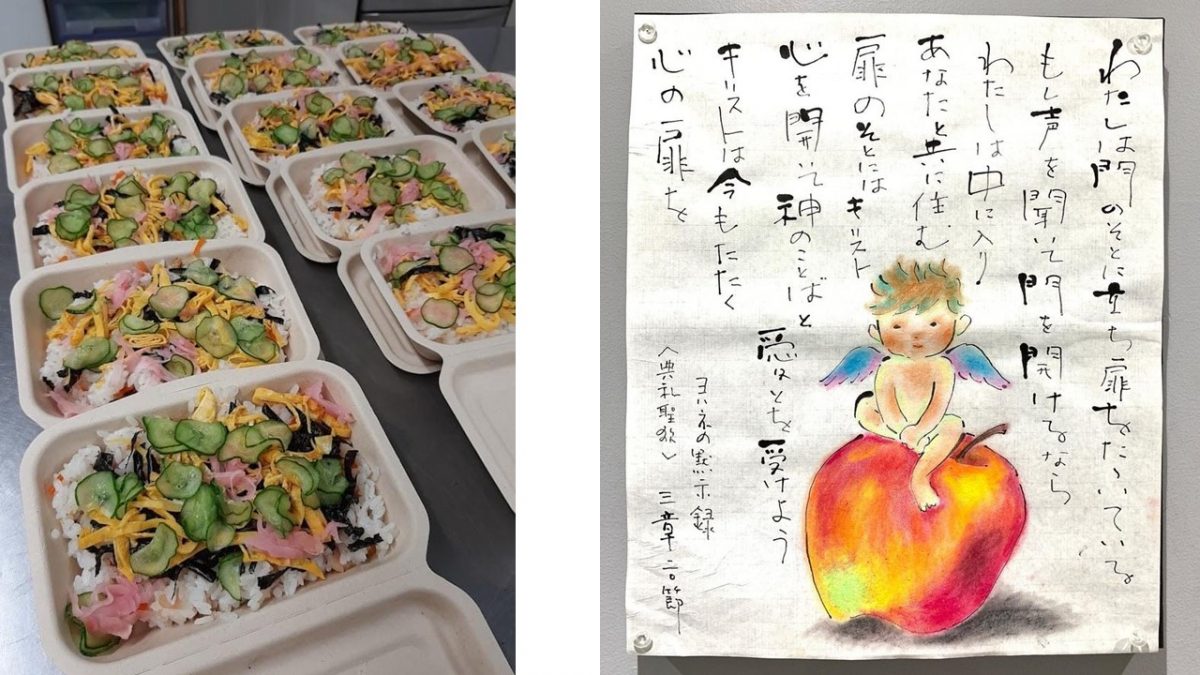 わたしは門のそとに立ち扉をたたいている
もし声を聞いて門を開けるなら
わたしは中に入り
あなたと共に住む
扉のそとにはキリスト
心を開いて神のことばと
愛はとちを受けよう
キリストは今もたたく
心の扉を
ヨハネの黙示録
三章二〇節
〈典礼聖歌〉